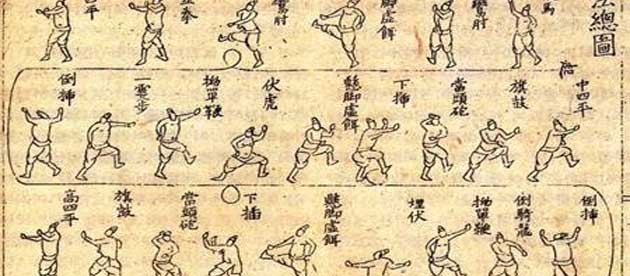 總圖
馬
鸞肘
脚虛餌
鸞肘
拳
平
中四平
旗鼓
當頭砲
下揷
懸脚虛餌
伏虎
拗單鞭
一霎步
倒揷
倒揷
倒騎龍
拗單鞭
埋伏
懸脚虛餌
下揷
當頭砲
旗鼓
高四平